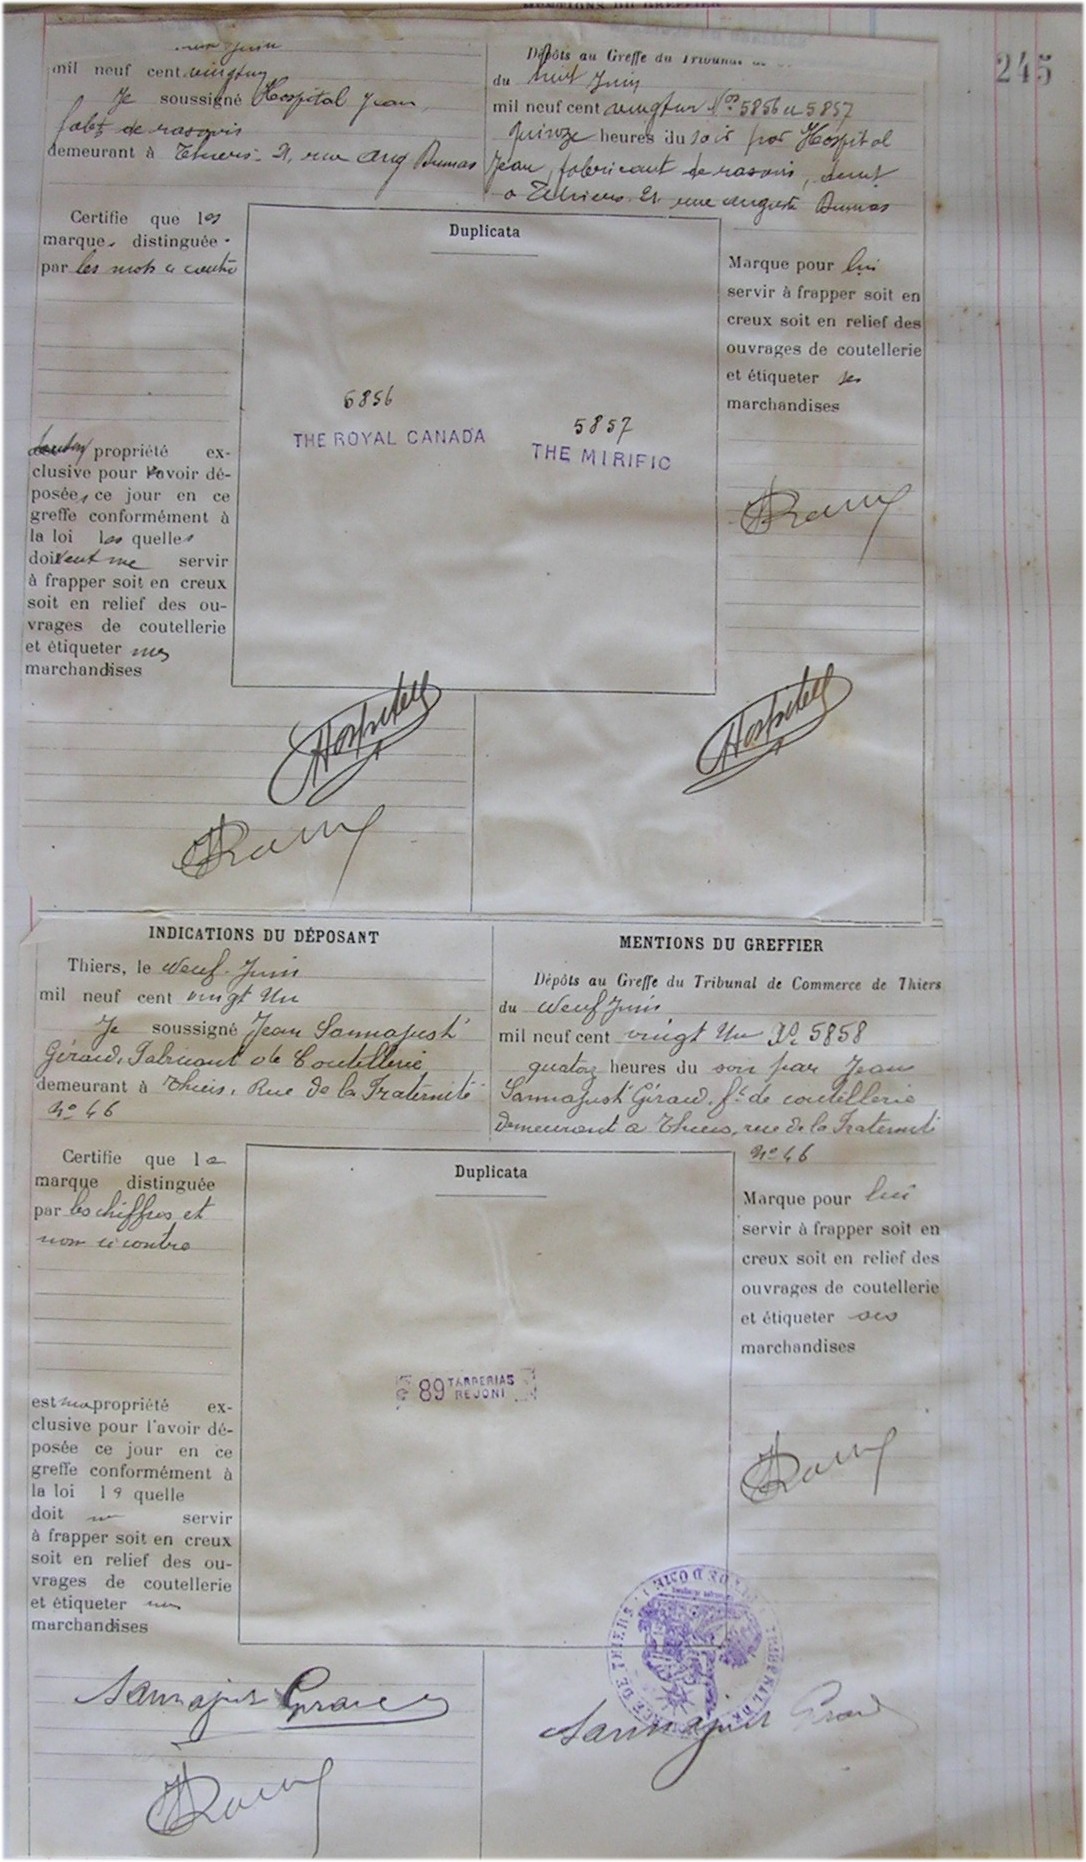 MENTIONS DU GREFFIER
245
Juin
mil neuf cent vingt un
Je soussigné Hospital Jean
fabt de rasoirs
demeurant à Thiers. 21, rue Aug Dumas
Dépôts au Greffe du Tribunal de
du huit Juin
mil neuf cent vingt un Nos 5856 et 5857
quinze heures du soir par Hospital
Jean, fabricant de rasoirs, demt
à Thiers 21 rue Auguste Dumas
Certifie que les
marques distinguée
par les mots ci contre
propriété ex-
clusive pour avoir dé-
posées ce jour en ce
greffe conformément à
la loi les quelles
doivent me servir
à frapper soit en creux
soit en relief des ou-
vrages de coutellerie
et étiqueter mes
marchandises
Duplicata
5856
THE ROYAL CANADA
5857
THE MIRIFIC
Marque pour lui
servir à frapper soit en
creux soit en relief des
ouvrages de coutellerie
et étiqueter ses
marchandises
Hospital
Hospital
INDICATIONS DU DÉPOSANT
Thiers, le Neuf Juin
mil neuf cent vingt Un
Je soussigné Jean Sannajust
Géraud, Fabricant de Coutellerie
demeurant à Thiers, Rue de la Fraternité
No 46
MENTIONS DU GREFFIER
Dépôts au Greffe du Tribunal de Commerce de Thiers
du Neuf Juin
mil neuf cent vingt Un No 5858
quatorze heures du soir par Jean
Sannajust Géraud, ft de coutellerie
demeurant à Thiers, rue de la Fraternité
No 46
Certifie que la
marque distinguée
par les chiffres et
nom ci contre
est ma propriété ex-
clusive pour l'avoir dé-
posée ce jour en ce
greffe conformément à
la loi la quelle
doit me servir
à frapper soit en creux
soit en relief des ou-
vrages de coutellerie
et étiqueter mes
marchandises
Duplicata
89 TARRERIAS
REJONI
Marque pour lui
servir à frapper soit en
creux soit en relief des
ouvrages de coutellerie
et étiqueter ses
marchandises
TRIBUNAL DE COMMERCE DE THIERS
Sannajust Géraud
Sannajust Géraud